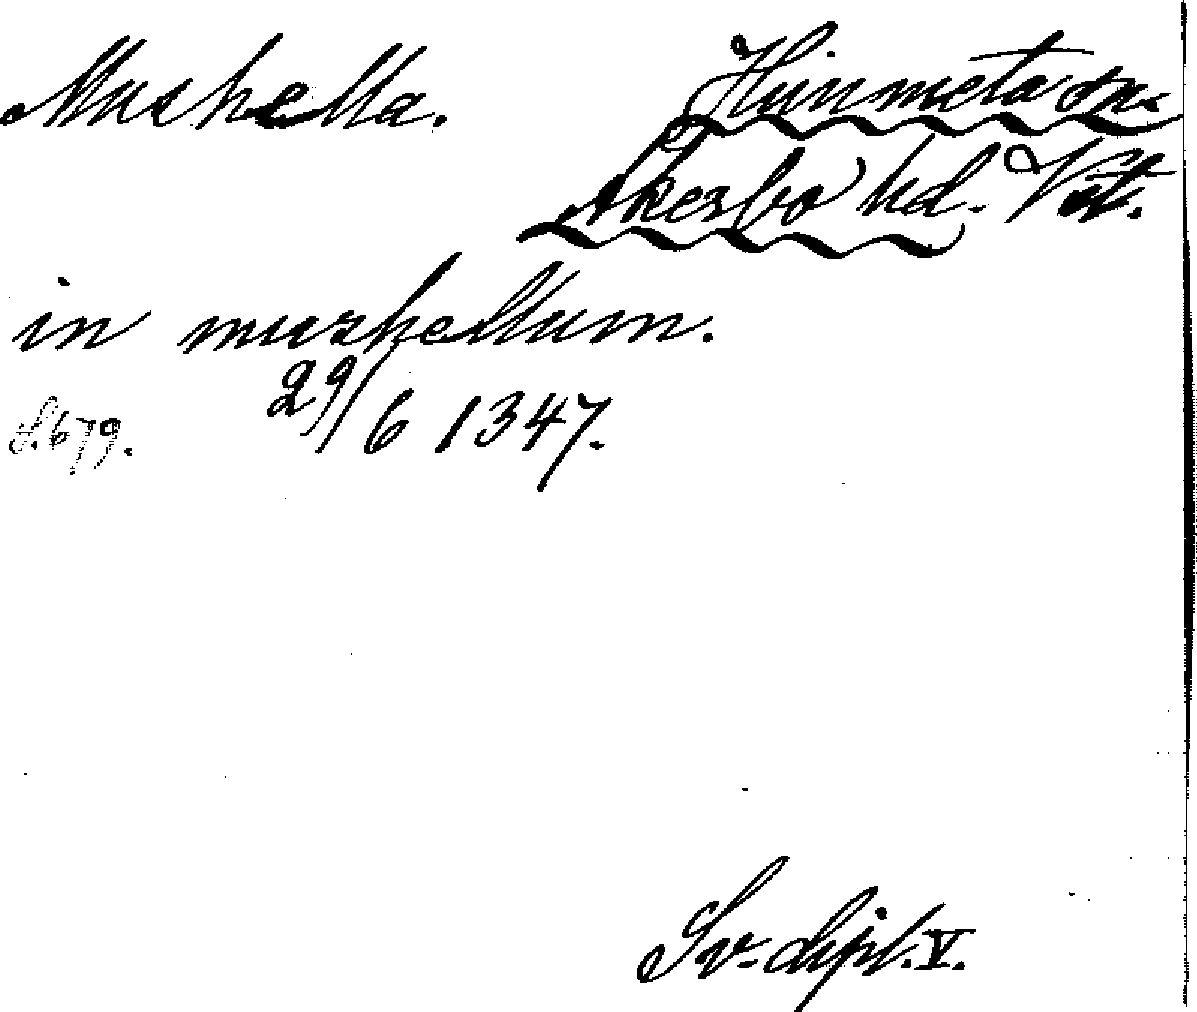 Mushella. Himmeta sn.
Åkerbo hd. Vst.
in mushellum.
S. 679. 29/6 1347.
Sv. dipl. V.